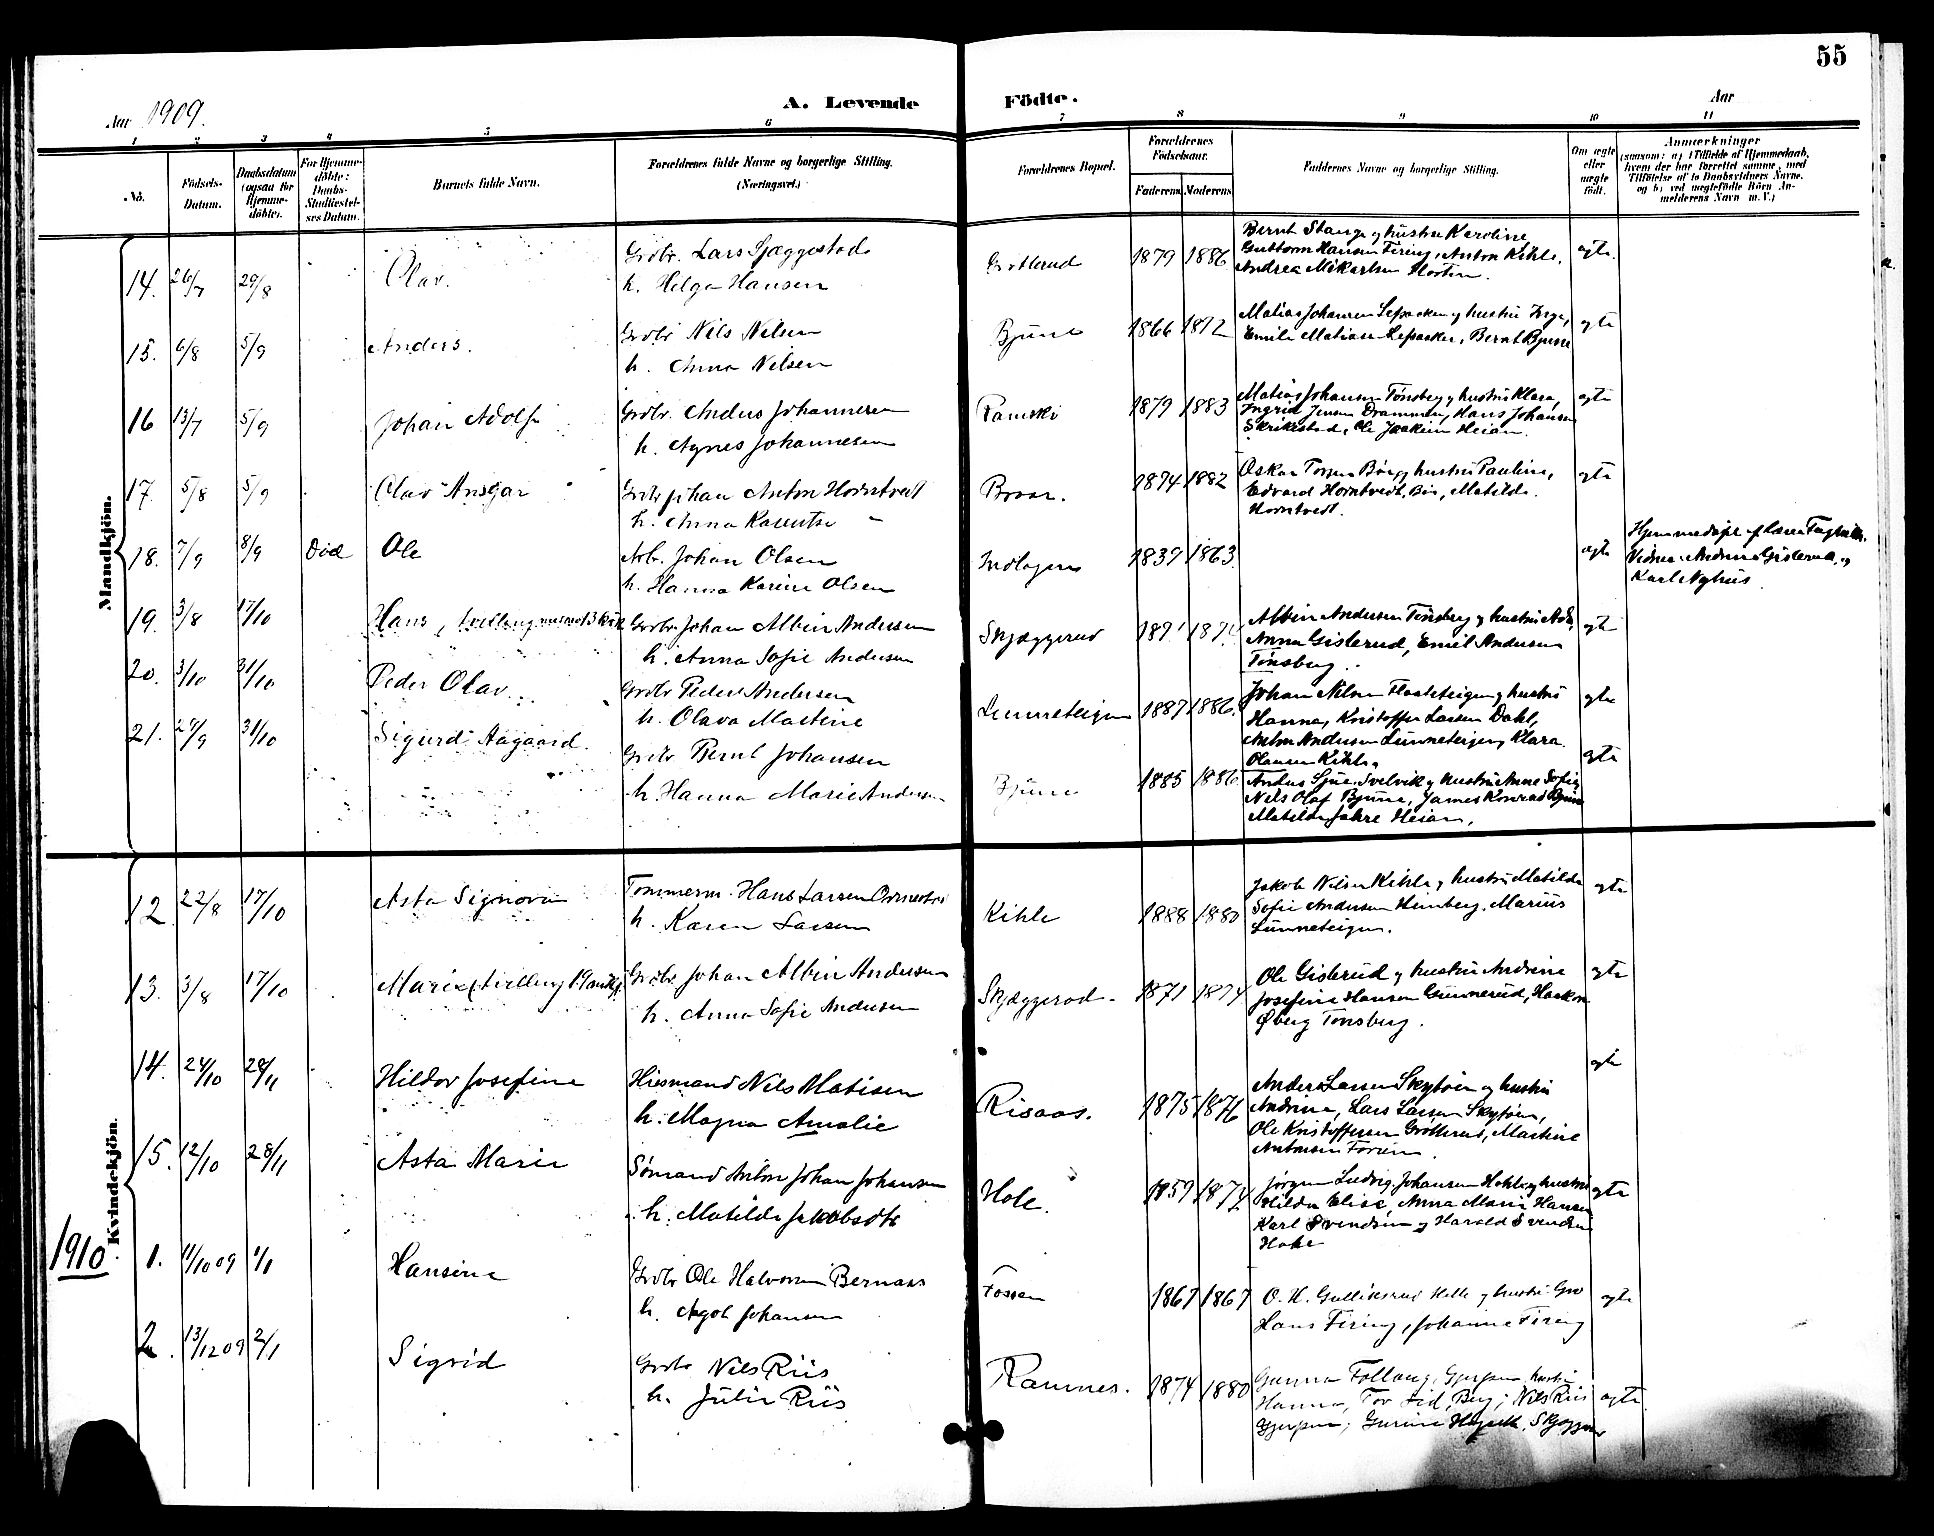 55
Aar 1909.
A. Levende Födte.
Aar
1 2 3 4 5 6 7 8 9 10 11
No.
Födsels-Datum.
Daabsdatum (ogsaa for Hjemmedöbte).
For Hjemmedöbte: Daabs-Stadfæstelses Datum.
Barnets fulde Navn.
Forældrenes fulde Navne og borgerlige Stilling.
(Næringsvei.)
Forældrenes Bopæl.
Forældrenes Födselsaar.
Faderens Moderens
Faddernes Navne og borgerlige Stilling.
Om ægte eller uægte födt.
Anmærkninger
(saasom: a) i Tilfælde af Hjemmedaab, hvem der har forrettet samme, med Tilföielse af to Daabsvidners Navne, og b) ved uægtefödte Börn Anmelderens Navn m. V.)
Mandkjön.
14. 26/7 29/8 Olav. Grdbr. Lars Sjæggestad
h. Helga Hansen
Grotterud 1879 1886
Bernt Stange og hustru Karoline
Guttorm Hansen Firing, Anton Kihle,
Andrea Mikarlsen Horten.
ægte.
15. 6/8 5/9 Anders. Grdbr Nils Nilsen
h. Anna Nilsen
Bjune 1866 1872
Matias Johansen Lefsaaker og hustru Inga,
Emile Matiasen Lefsaaker, Bernt Bjune
ægte
16 13/7 5/9 Johan Adolf Grdbr. Anders Johannesen
h. Agnes Johannesen
Ramski 1879 1883
Matias Johansen Tønsberg og hustru Klara,
Ingrid Jensen Drammen, Hans Johansen
Skrikestad, Ole Joakim Heian.
ægte
17. 5/8 5/9 Olav Ansgar Grdbr Johan Anton Horntvedt
h. Anna Karentse
Braar. 1874 1882
Oskar Bøe og hustru Pauline,
Edvard Horntvedt, Matilde
Horntvedt.
ægte
18. 7/9 8/9 Død Ole Arb. Johan Olsen
h. Hanna Karine Olsen
Indlagene 1837 1863
ægte
Hjemmedøpt af
Vidner: Andrine Gislerud og
Karl Nyhus
19. 3/8 17/10 Hans, tvilling med no 13 Kvk Grdbr. Johan Albin Andersen
h. Anna Sofie Andersen
Skjæggerud 1871 1874
Albin Andersen Tønsberg og hustru
Anna Gislerud, Emil Andersen
Tønsberg.
ægte
20. 3/10 31/10 Peder Olav. Grdbr Peder Andersen
h. Olava Martine
Lunneteigen 1887 1886.
Johan Nilsen Flaateteigen og hustru
Hanna, Kristoffer Larsen Dahl,
Anton Andersen Lunneteigen, Klara
Olausen Kihle.
ægte
21. 29/9 31/10 Sigurd Aagaard. Grdbr Bernt Johansen
h. Hanna Marie Andersen
Bjune 1885 1886
Anders Sjue, Svelvik og hustru Anne Sofie,
Nils Olaf Bjune, James Konrad Bjune
Matilde Jahre Heian,
ægte
Kvindekjön.
12. 22/8 17/10 Asta Signora Tømmerm. Hans Larsen
h. Karen Larsen
Kihle 1888 1880
Jakob Nilsen Kihle og hustru Matilde
Sofie Andersen Heimberg. Marius
Lunneteigen.
ægte
13. 3/8 17/10 Marie (tvilling 19 Grdbr Johan Albin Andersen
h. Anna Sofie Andersen
Skjæggerød. 1871 1874
Ole Gislerud og hustru Andrine
Josefine Hansen Gunnerud, Haakon
Øberg Tønsberg.
ægte
14. 24/10 28/11 Hildor Josefine Husmand Nils Matisen
h. Magna Amalie
Risaas. 1875 1876
Anders Larsen Skytøen og hustru
Andrine, Lars Larsen Skytøen,
Ole Kristoffersen Grotterud, Martine
Antonsen
ægte
15. 12/10 28/11 Asta Marie Sømand Anton Johan Johansen
h. Matilde Jakobsdtr
Hole. 1859 1872
Jørgen Ludvig Johansen Hole og hustru
Hilda Elise, Anna Marie Hansen
Karl Svendsen og Harald Svendsen
Hole
ægte
1910
1. 11/10 09 1/1 Hansine Grdbr Ole Halvorsen Bernaas
h. Agot Johansen
Fossan 1867 1867
O. H. Gulliksrud Helle og hustru Gro
Hans Firing, Johanne Firing
ægte
2. 13/12 09 2/1 Sigrid Grdbr Nils Riis
h. Julie Riis
Ramnes. 1874 1880
Gunnar Follaug, Gjerpen, hustru
Hanna, Tor Lid, Berg; Nils Riis
Gjerpen;
ægte